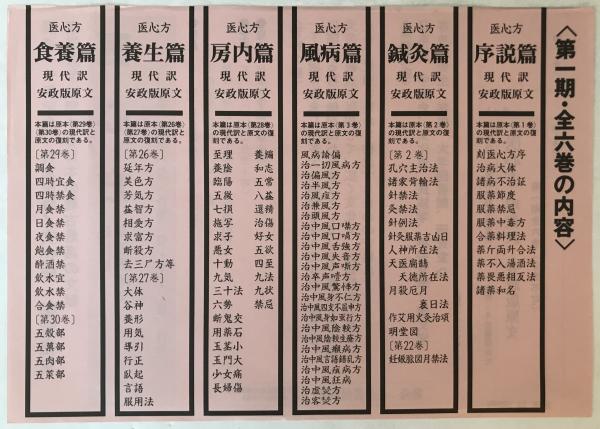 〈第一期・全六巻の内容〉
医心方
序説篇
現代訳
安政版原文
本篇は原本(第1巻)
の現代訳と原文の復
刻である。
刻医心方序
治病大体
諸病不治証
服薬節度
服薬禁忌
服薬中毒方
合薬料理法
薬斤両升合法
薬不入湯酒法
薬畏悪相反法
諸薬和名
医心方
鍼灸篇
現代訳
安政版原文
本篇は原本(第2巻)
の現代訳と原文の復
刻である。
〔第2巻〕
孔穴主治法
諸家背輸法
針禁法
灸禁法
針例法
針灸服薬吉凶日
人神所在法
天医扁鵲
天徳所在法
月殺厄月
衰日法
作艾用火灸治頌
明堂図
〔第22巻〕
妊娠脈図月禁法
医心方
風病篇
現代訳
安政版原文
本篇は原本(第3巻)
の現代訳と原文の復
刻である。
風病論偏
治一切風病方
治偏風方
治半風方
治風痙方
治柔風方
治頭風方
治中風口噤方
治中風口喎方
治中風舌強方
治中風失音方
治中風声嘶方
治中風驚悸方
治中風身不仁方
治中風四支不屈申方
治中風身如虫行方
治中風隠軫方
治中風隠軫生瘡方
治中風癩病方
治中風言語錯乱方
治中風癲病方
治中風狂病
治虚熨方
治客熨方
医心方
房内篇
現代訳
安政版原文
本篇は原本(第28巻)
の現代訳と原文の復
刻である。
至理
養陽
養陰
和志
臨陽
五常
五徴
八益
七損
還精
施写
治傷
求子
好女
悪女
五欲
十動
四至
九気
九法
三十法
九状
六勢
禁忌
断鬼交
用薬石
玉茎小
玉門大
少女痛
長婦傷
医心方
養生篇
現代訳
安政版原文
本篇は原本(第26巻)
(第27巻)の現代訳と
原文の復刻である。
〔第26巻〕
延年方
美色方
芳気方
益智方
相愛方
求富方
断穀方
去三尸方等
〔第27巻〕
大体
谷神
養形
用気
導引
行正
臥起
言語
服用法
医心方
食養篇
現代訳
安政版原文
本篇は原本(第29巻)
(第30巻)の現代訳と
原文の復刻である。
〔第29巻〕
調食
四時宜食
四時禁食
月食禁
日食禁
夜食禁
飽食禁
酔酒禁
飲水宜
飲水禁
合食禁
〔第30巻〕
五穀部
五菓部
五肉部
五菜部